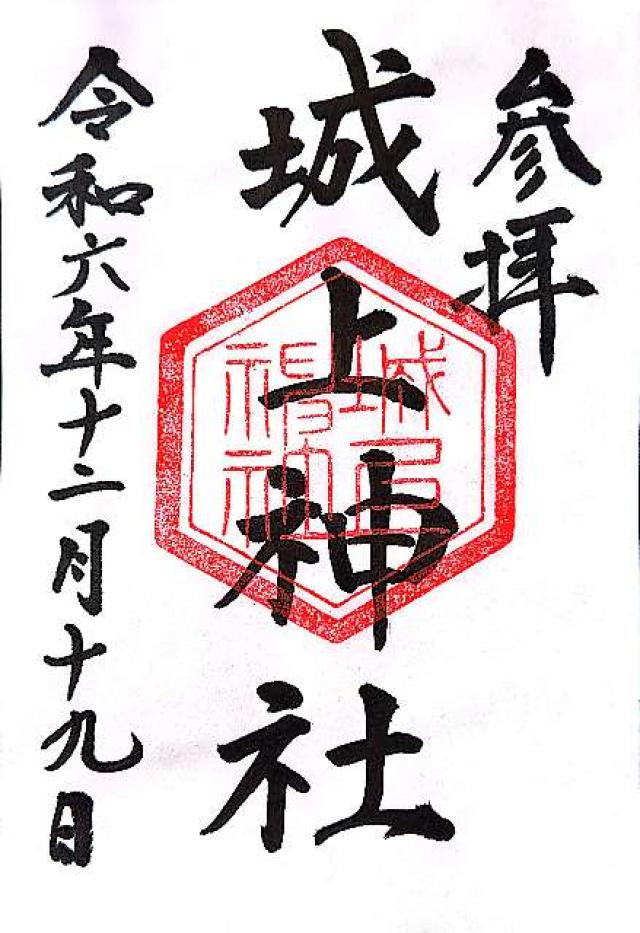 参拝
城上神社
令和六年十二月十九日